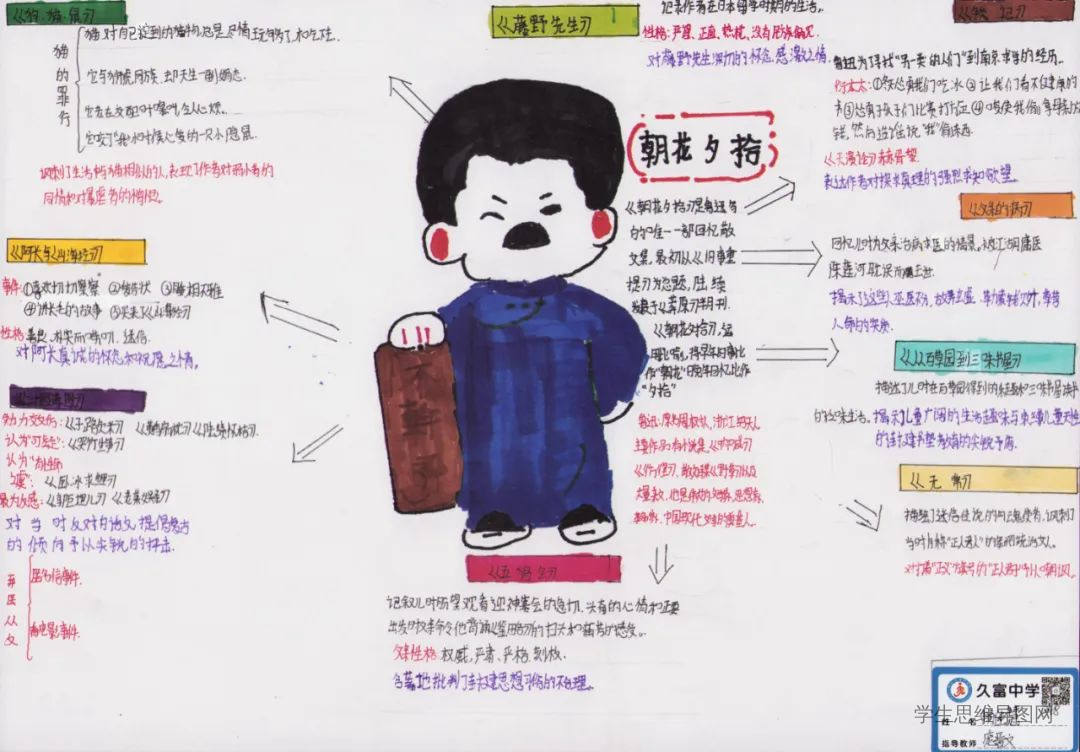 《狗·猫·鼠》
猫的罪行
猫对自己捉到的猎物,总是尽情玩弄够了,和吃住.
它与狮虎同族,却天生一副媚态.
它老在交配时嚎叫,令人心烦..
它吃了"我"小时候心爱的一只小隐鼠.
讽刺了生活中与猫相似的人,表现了作者对弱小者的
同情和对暴虐者的憎恨.
《阿长与《山海经》》
事件:①喜欢切切察察 ②睡
③
④讲长毛的故事 ⑤买来了《山海经》
性格:善良、朴实而
迷信.
对阿长真诚的怀念和祝愿之情.
《二十四孝图》
《子路负米》
《哭竹生笋》
《卧冰求鲤》
最为反感:《郭巨埋儿》《老莱娱亲》
对当时反对白话文,提倡复古
的倾向予以尖锐的抨击.
弃医从文
匿名信事件.
看电影事件.
《藤野先生》
记录作者在日本留学时期的生活..
性格:严谨、正直、热忱、没有民族偏见.
对藤野先生深切的怀念,感激之情.
朝花夕拾
《朝花夕拾》是鲁迅写
的唯一一部回忆散
文集,最初以《旧事重
提》为总题,陆续
发表于《莽原》半月刊.
"夕拾"
鲁迅:原名周树人,浙江绍兴人
主要作品:有小说集《呐喊》
《彷徨》、散文诗《野草》以及
大量杂文,他是伟大的文学家、思想家、
革命家、中国现代文学的奠基人.
《琐记》
鲁迅为了寻找"另一类的人们"到南京求学的经历.
衍太太:①怂恿我们吃冰②让我们看不健康的
书③怂恿孩子们比赛打旋④唆使我偷母亲的
钱,然后造谣说"我"偷东西.
《天演论》赫胥黎
表达作者对探求真理的强烈求知欲望.
《父亲的病》
回忆儿时为父亲治病求医的情景,被江湖庸医
陈莲河耽误而
揭示了这些人巫医不分、故弄玄虚、勒索钱财、草菅
人命的实质.
《从百草园到三味书屋》
描述了儿时在百草园得到的乐趣和三味书屋读书
的乏味生活. 揭示儿童广阔的生活趣味与束缚儿童天性
的封建书塾教育的尖锐矛盾.
《无常》
描绘了迷信传说的勾魂使者,讽刺了
当时自称"正人君子"的
对打着"正义"旗号的"正人君子"予以嘲讽.
《五猖会》
记叙儿时盼望观看迎神赛会的急切、兴奋的心情和正要
出发时父亲令他背诵《鉴略》的扫兴和痛苦的感受.
父亲性格:权威、严肃、严格、刻板.
含蓄地批判了封建思想习俗的不合理.
久富中学
姓名
指导教师
学生思维导图网